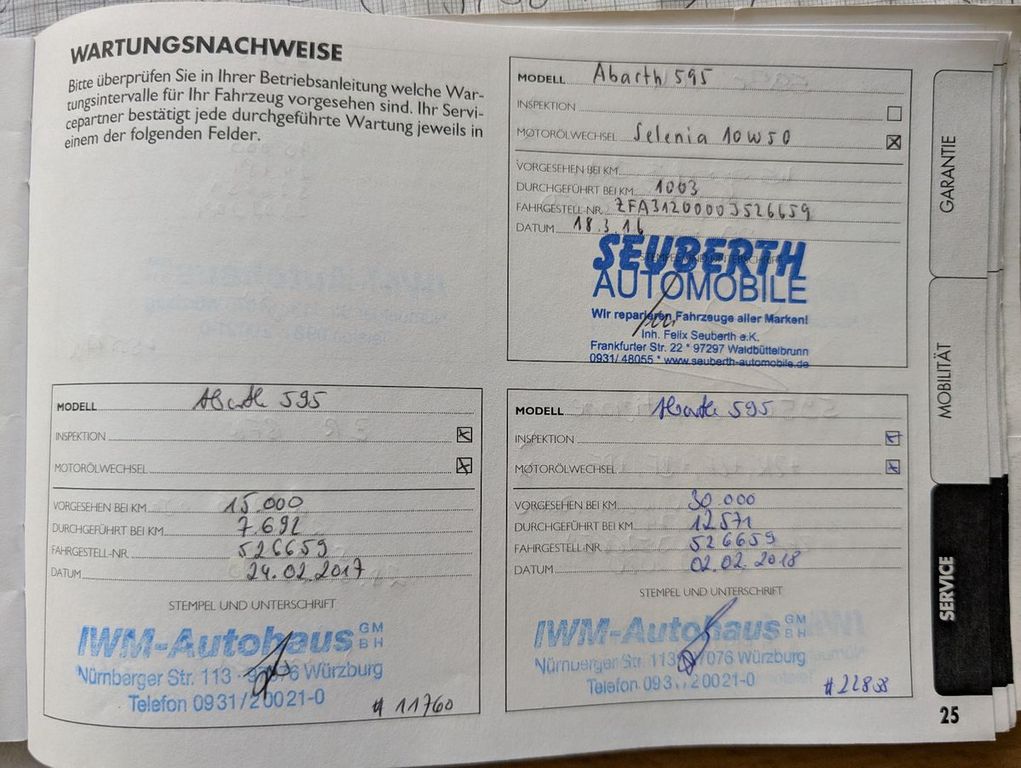 WARTUNGSNACHWEISE
Bitte überprüfen Sie in Ihrer Betriebsanleitung welche War-
tungsintervalle für Ihr Fahrzeug vorgesehen sind. Ihr Servi-
cepartner bestätigt jede durchgeführte Wartung jeweils in
einem der folgenden Felder.
MODELL Abarth 595
INSPEKTION
MOTORÖLWECHSEL Selenia 10W50
VORGESEHEN BEI KM
DURCHGEFÜHRT BEI KM 1003
FAHRGESTELL-NR. ZFA31200003526659
DATUM 18.3.16
STEMPEL UND UNTERSCHRIFT
SEUBERTH
AUTOMOBILE
Wir reparieren Fahrzeuge aller Marken!
Inh. Felix Seuberth e.K.
Frankfurter Str. 22 * 97297 Waldbüttelbrunn
0931/ 48055 * www.seuberth-automobile.de
MODELL Abarth 595
INSPEKTION
MOTORÖLWECHSEL
VORGESEHEN BEI KM 15 000
DURCHGEFÜHRT BEI KM 7.692
FAHRGESTELL-NR. 526659
DATUM 24.02.2017
STEMPEL UND UNTERSCHRIFT
IWM-Autohaus GMBH
Nürnberger Str. 113 - 97076 Würzburg
Telefon 0931/20021-0
# 11760
MODELL Abarth 595
INSPEKTION
MOTORÖLWECHSEL
VORGESEHEN BEI KM 30 000
DURCHGEFÜHRT BEI KM 12571
FAHRGESTELL-NR. 526659
DATUM 02.02.2018
STEMPEL UND UNTERSCHRIFT
IWM-Autohaus GMBH
Nürnberger Str. 113 97076 Würzburg
Telefon 0931/20021-0
# 22838
GARANTIE
MOBILITÄT
SERVICE
25